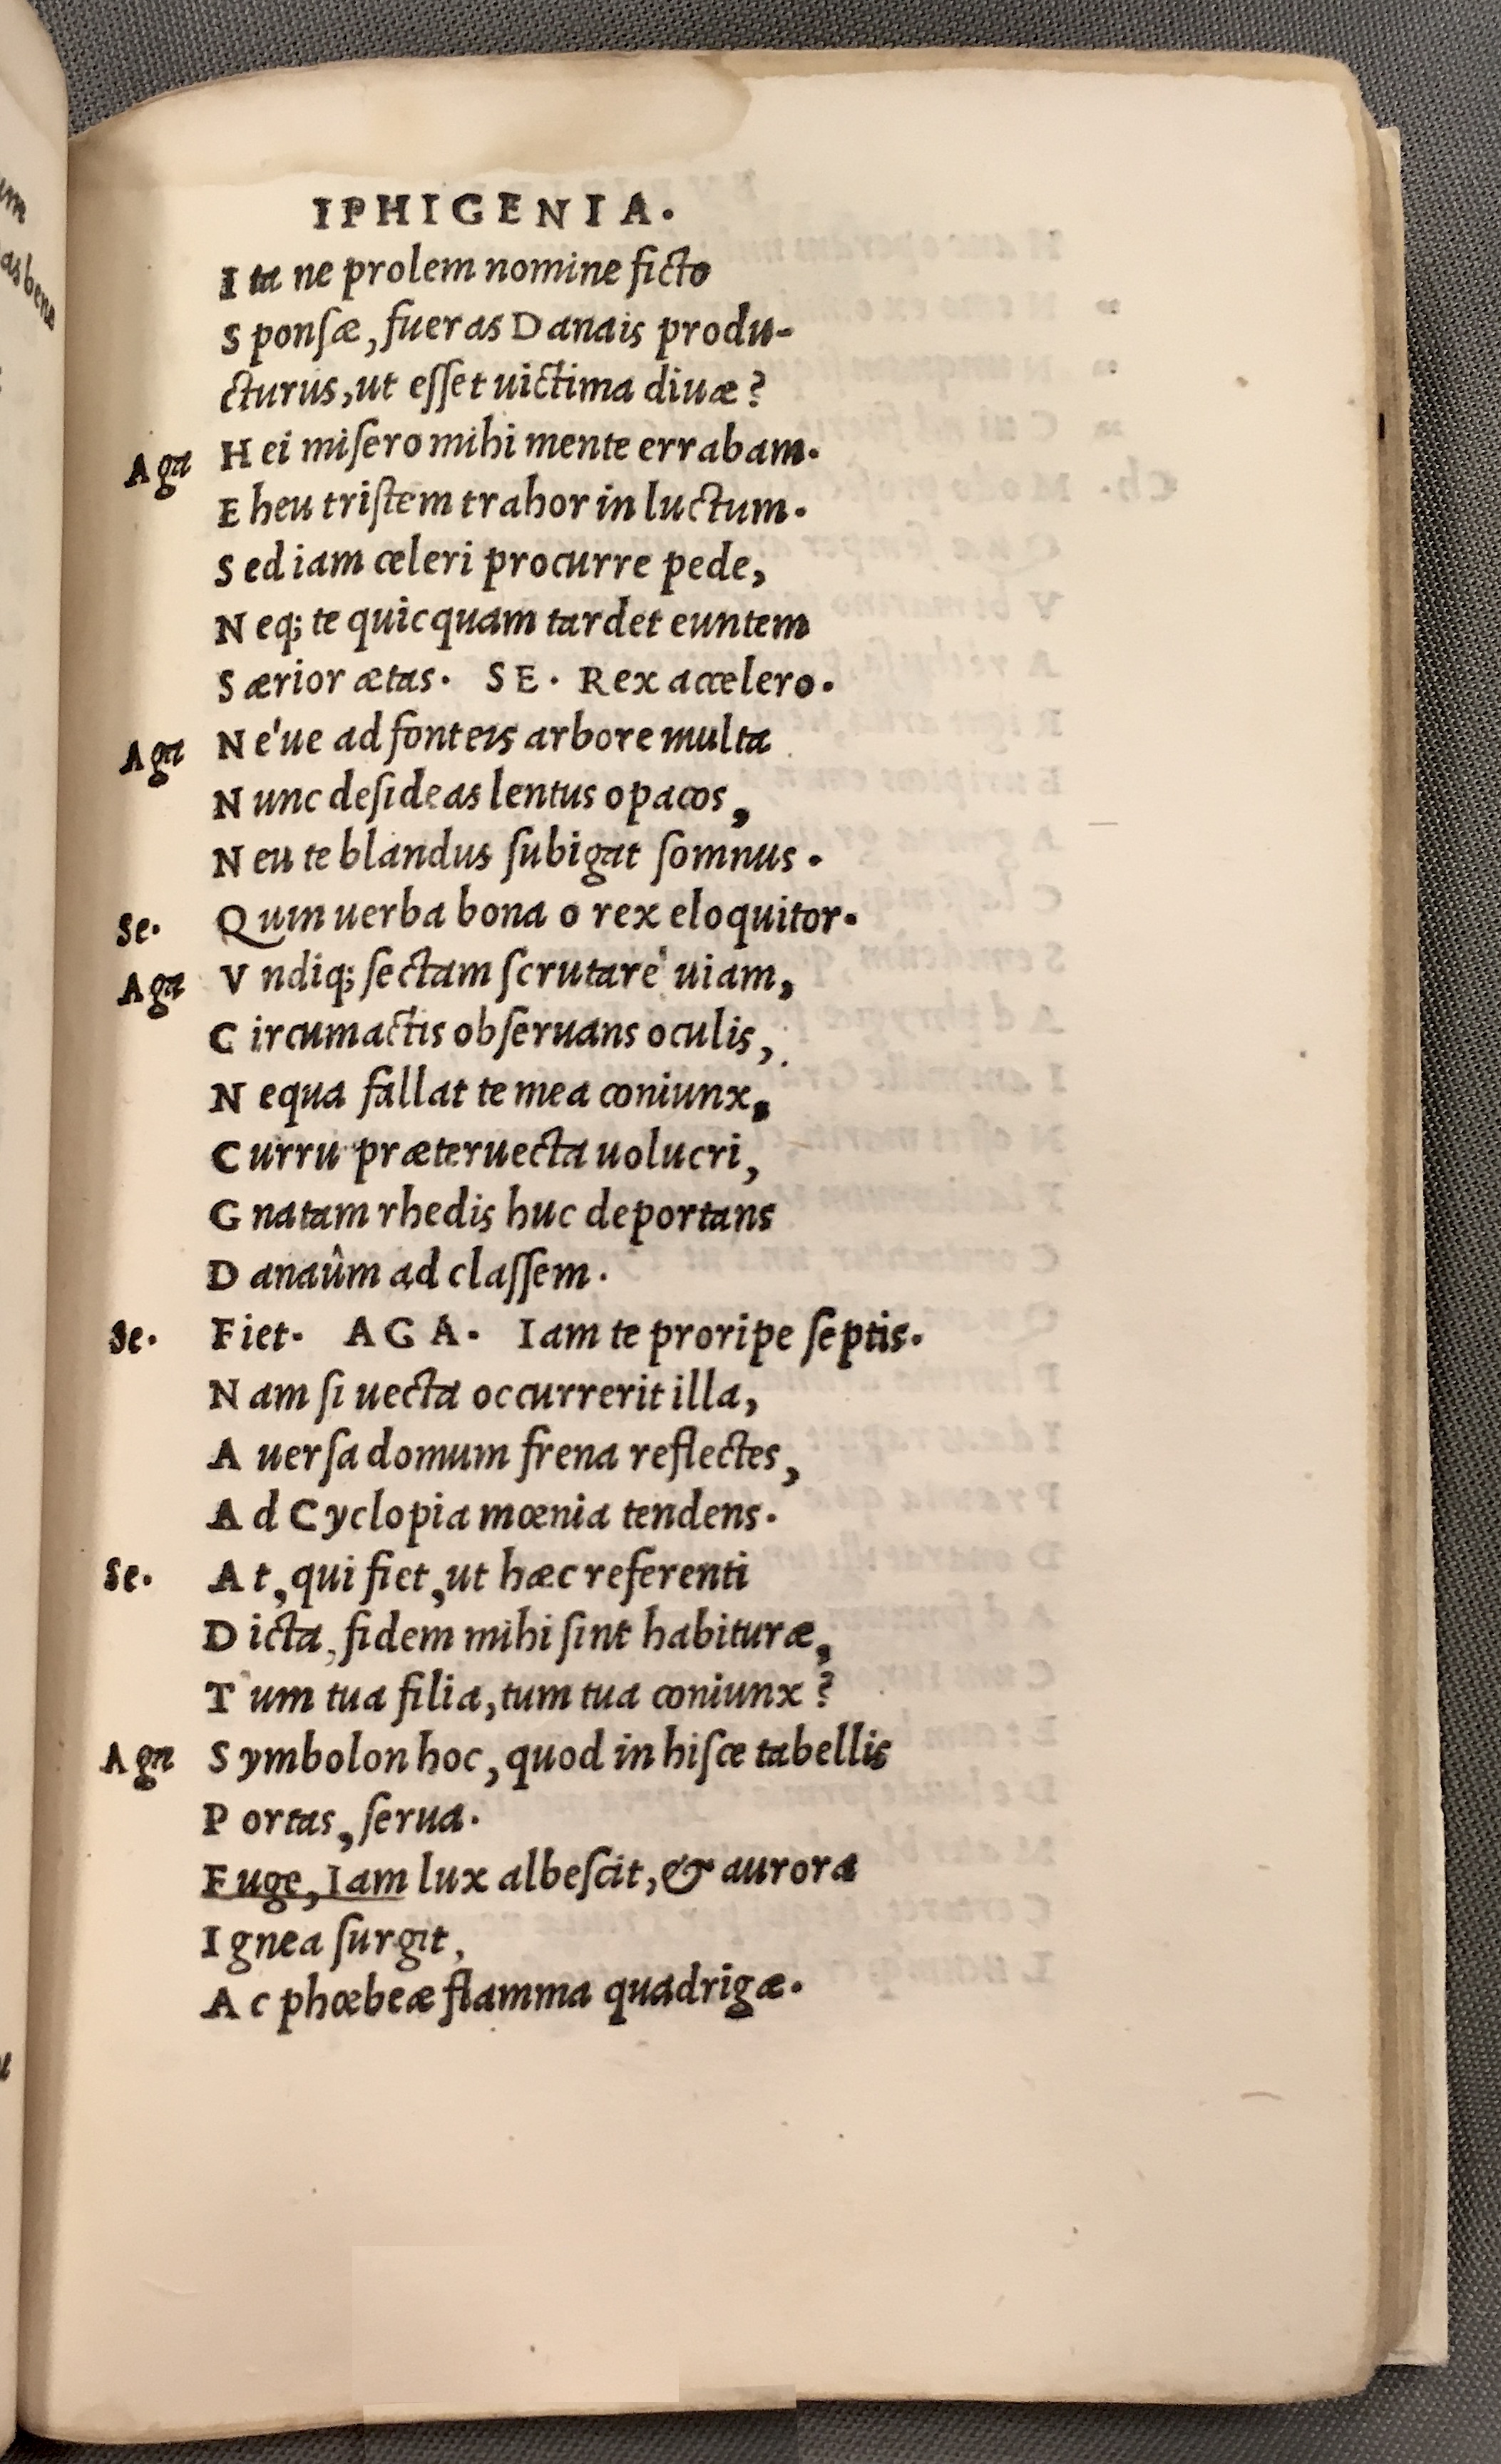 IPHIGENIA.
I ta ne prolem nomine ficto
S ponsæ, fueras Danais produ-
cturus, ut esset uictima diuæ?
Aga H ei misero mihi mente errabam.
E heu tristem trahor in luctum.
S ed iam celeri procurre pede,
N eq; te quicquam tardet euntem
S ærior ætas. SE. Rex accelero.
Aga N e'ue ad fonteis arbore multa
N unc desideas lentus opacos,
N eu te blandus subigat somnus.
Se. Q uin uerba bona o rex eloquitor.
Aga V ndiq; sectam scrutare' uiam,
C ircumactis obseruans oculis,
N equa fallat te mea coniunx,
C urru præteruecta uolucri,
G natam rhedis huc deportans
D anaûm ad classem.
Se. Fiet. AGA. Iam te proripe septis.
N am si uecta occurrerit illa,
A uersa domum frena reflectes,
A d Cyclopia mœnia tendens.
Se. A t, qui fiet, ut hæc referenti
D icta, fidem mihi sint habituræ,
T um tua filia, tum tua coniunx?
Aga S ymbolon hoc, quod in hisce tabellis
P ortas, serua.
F uge, Iam lux albescit, & aurora
I gnea surgit,
A c phœbeæ flamma quadrigæ.